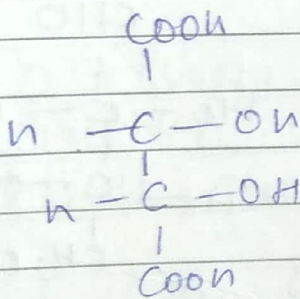 COOH
H - C - OH
H - C - OH
COOH